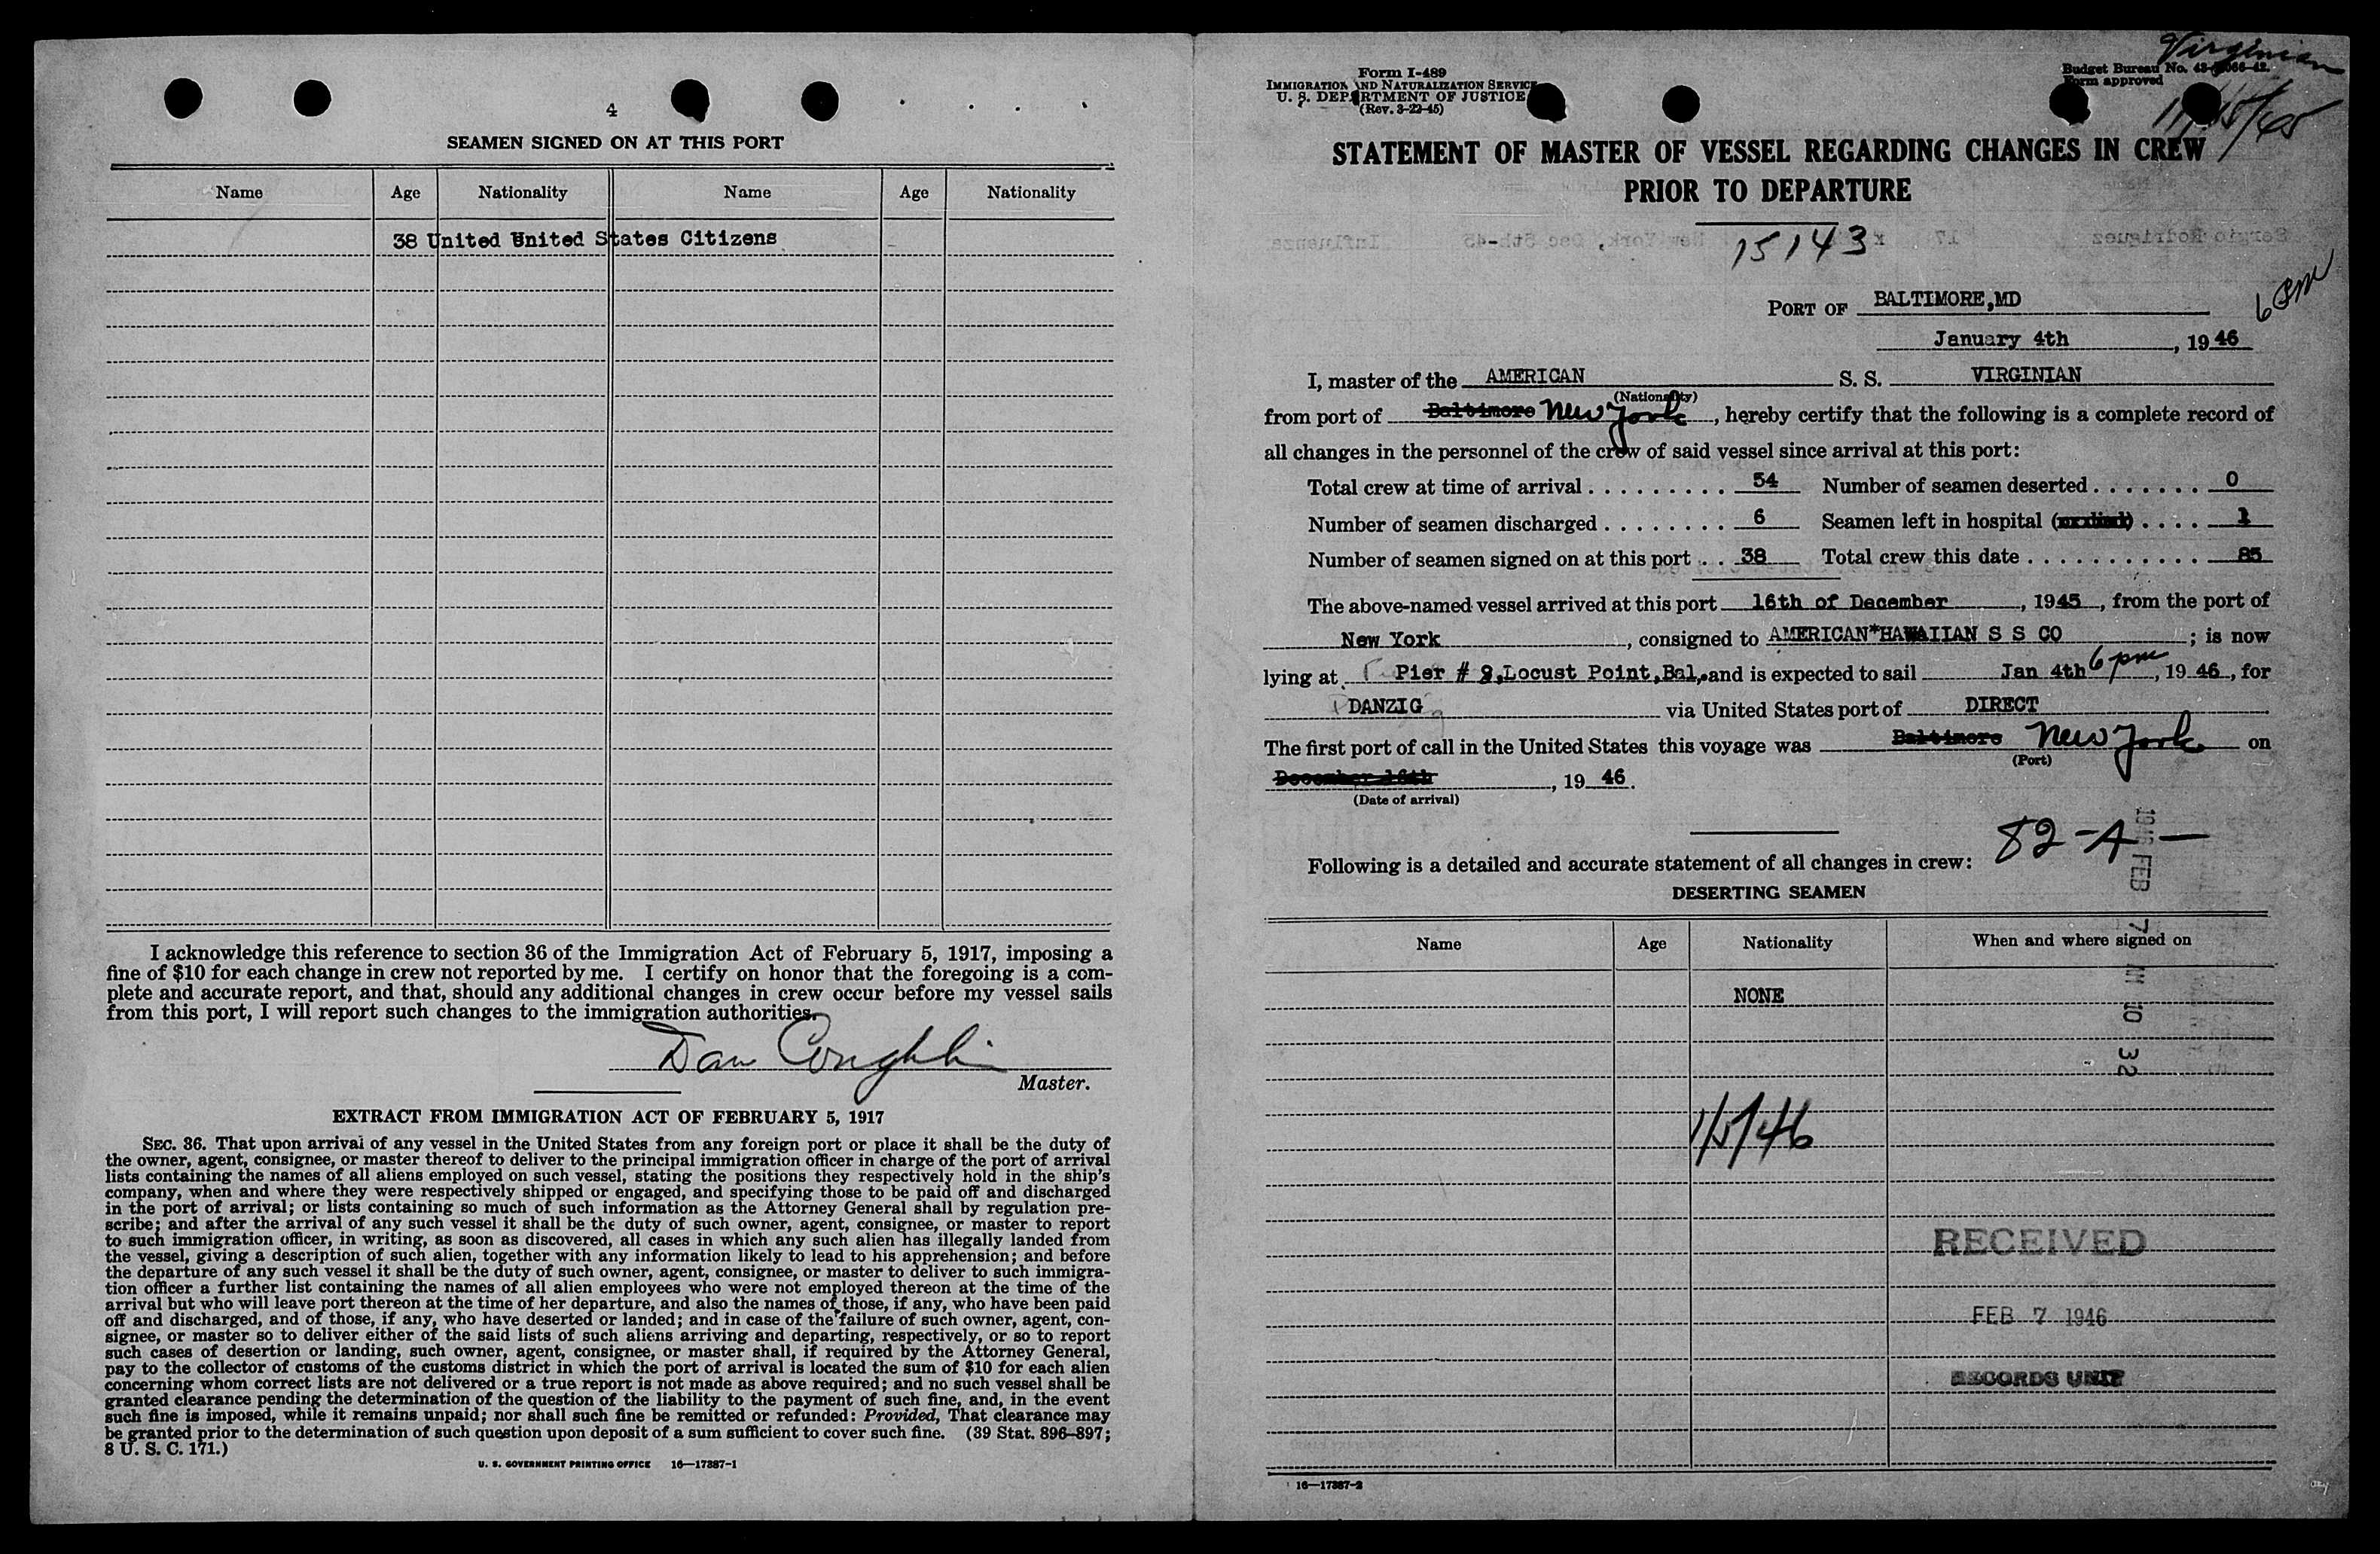 4
SEAMEN SIGNED ON AT THIS PORT
Name Age Nationality Name Age Nationality
38 United United States Citizens
I acknowledge this reference to section 36 of the Immigration Act of February 5, 1917, imposing a
fine of $10 for each change in crew not reported by me. I certify on honor that the foregoing is a com-
plete and accurate report, and that, should any additional changes in crew occur before my vessel sails
from this port, I will report such changes to the immigration authorities.
Dan Coughlin
Master.
EXTRACT FROM IMMIGRATION ACT OF FEBRUARY 5, 1917
SEC. 36. That upon arrival of any vessel in the United States from any foreign port or place it shall be the duty of
the owner, agent, consignee, or master thereof to deliver to the principal immigration officer in charge of the port of arrival
lists containing the names of all aliens employed on such vessel, stating the positions they respectively hold in the ship's
company, when and where they were respectively shipped or engaged, and specifying those to be paid off and discharged
in the port of arrival; or lists containing so much of such information as the Attorney General shall by regulation pre-
scribe; and after the arrival of any such vessel it shall be the duty of such owner, agent, consignee, or master to report
to such immigration officer, in writing, as soon as discovered, all cases in which any such alien has illegally landed from
the vessel, giving a description of such alien, together with any information likely to lead to his apprehension; and before
the departure of any such vessel it shall be the duty of such owner, agent, consignee, or master to deliver to such immigra-
tion officer a further list containing the names of all alien employees who were not employed thereon at the time of the
arrival but who will leave port thereon at the time of her departure, and also the names of those, if any, who have been paid
off and discharged, and of those, if any, who have deserted or landed; and in case of the failure of such owner, agent, con-
signee, or master so to deliver either of the said lists of such aliens arriving and departing, respectively, or so to report
such cases of desertion or landing, such owner, agent, consignee, or master shall, if required by the Attorney General,
pay to the collector of customs of the customs district in which the port of arrival is located the sum of $10 for each alien
concerning whom correct lists are not delivered or a true report is not made as above required; and no such vessel shall be
granted clearance pending the determination of the question of the liability to the payment of such fine, and, in the event
such fine is imposed, while it remains unpaid; nor shall such fine be remitted or refunded: Provided, That clearance may
be granted prior to the determination of such question upon deposit of a sum sufficient to cover such fine. (39 Stat. 896-897;
8 U. S. C. 171.)
U. S. GOVERNMENT PRINTING OFFICE 16—17387-1
Form I-489
IMMIGRATION AND NATURALIZATION SERVICE
U. S. DEPARTMENT OF JUSTICE
(Rev. 3-22-45)
Virginian
Budget Bureau No.
Form approved
STATEMENT OF MASTER OF VESSEL REGARDING CHANGES IN CREW
PRIOR TO DEPARTURE
15143
PORT OF BALTIMORE,MD
6 pm
January 4th, 19 46
I, master of the AMERICAN S. S. VIRGINIAN
(Nationality)
from port of Baltimore New York, hereby certify that the following is a complete record of
all changes in the personnel of the crew of said vessel since arrival at this port:
Total crew at time of arrival . . . . . . . . . 54 Number of seamen deserted . . . . . . . 0
Number of seamen discharged . . . . . . . . 6 Seamen left in hospital (or died) . . . . 1
Number of seamen signed on at this port . . 38 Total crew this date . . . . . . . . . . . 85
The above-named vessel arrived at this port 16th of December, 1945, from the port of
New York, consigned to AMERICAN*HAWAIIAN S S CO; is now
lying at Pier # 9,Locust Point,Bal, and is expected to sail Jan 4th 6 pm, 19 46, for
DANZIG via United States port of DIRECT
The first port of call in the United States this voyage was Baltimore New York on
(Port)
December 16th, 19 46.
(Date of arrival)
82-A-
Following is a detailed and accurate statement of all changes in crew:
DESERTING SEAMEN
Name Age Nationality When and where signed on
NONE
1946 FEB 7 AM 10 32
1/5/46
RECEIVED
FEB 7 1946
RECORDS UNIT
16—17387-2